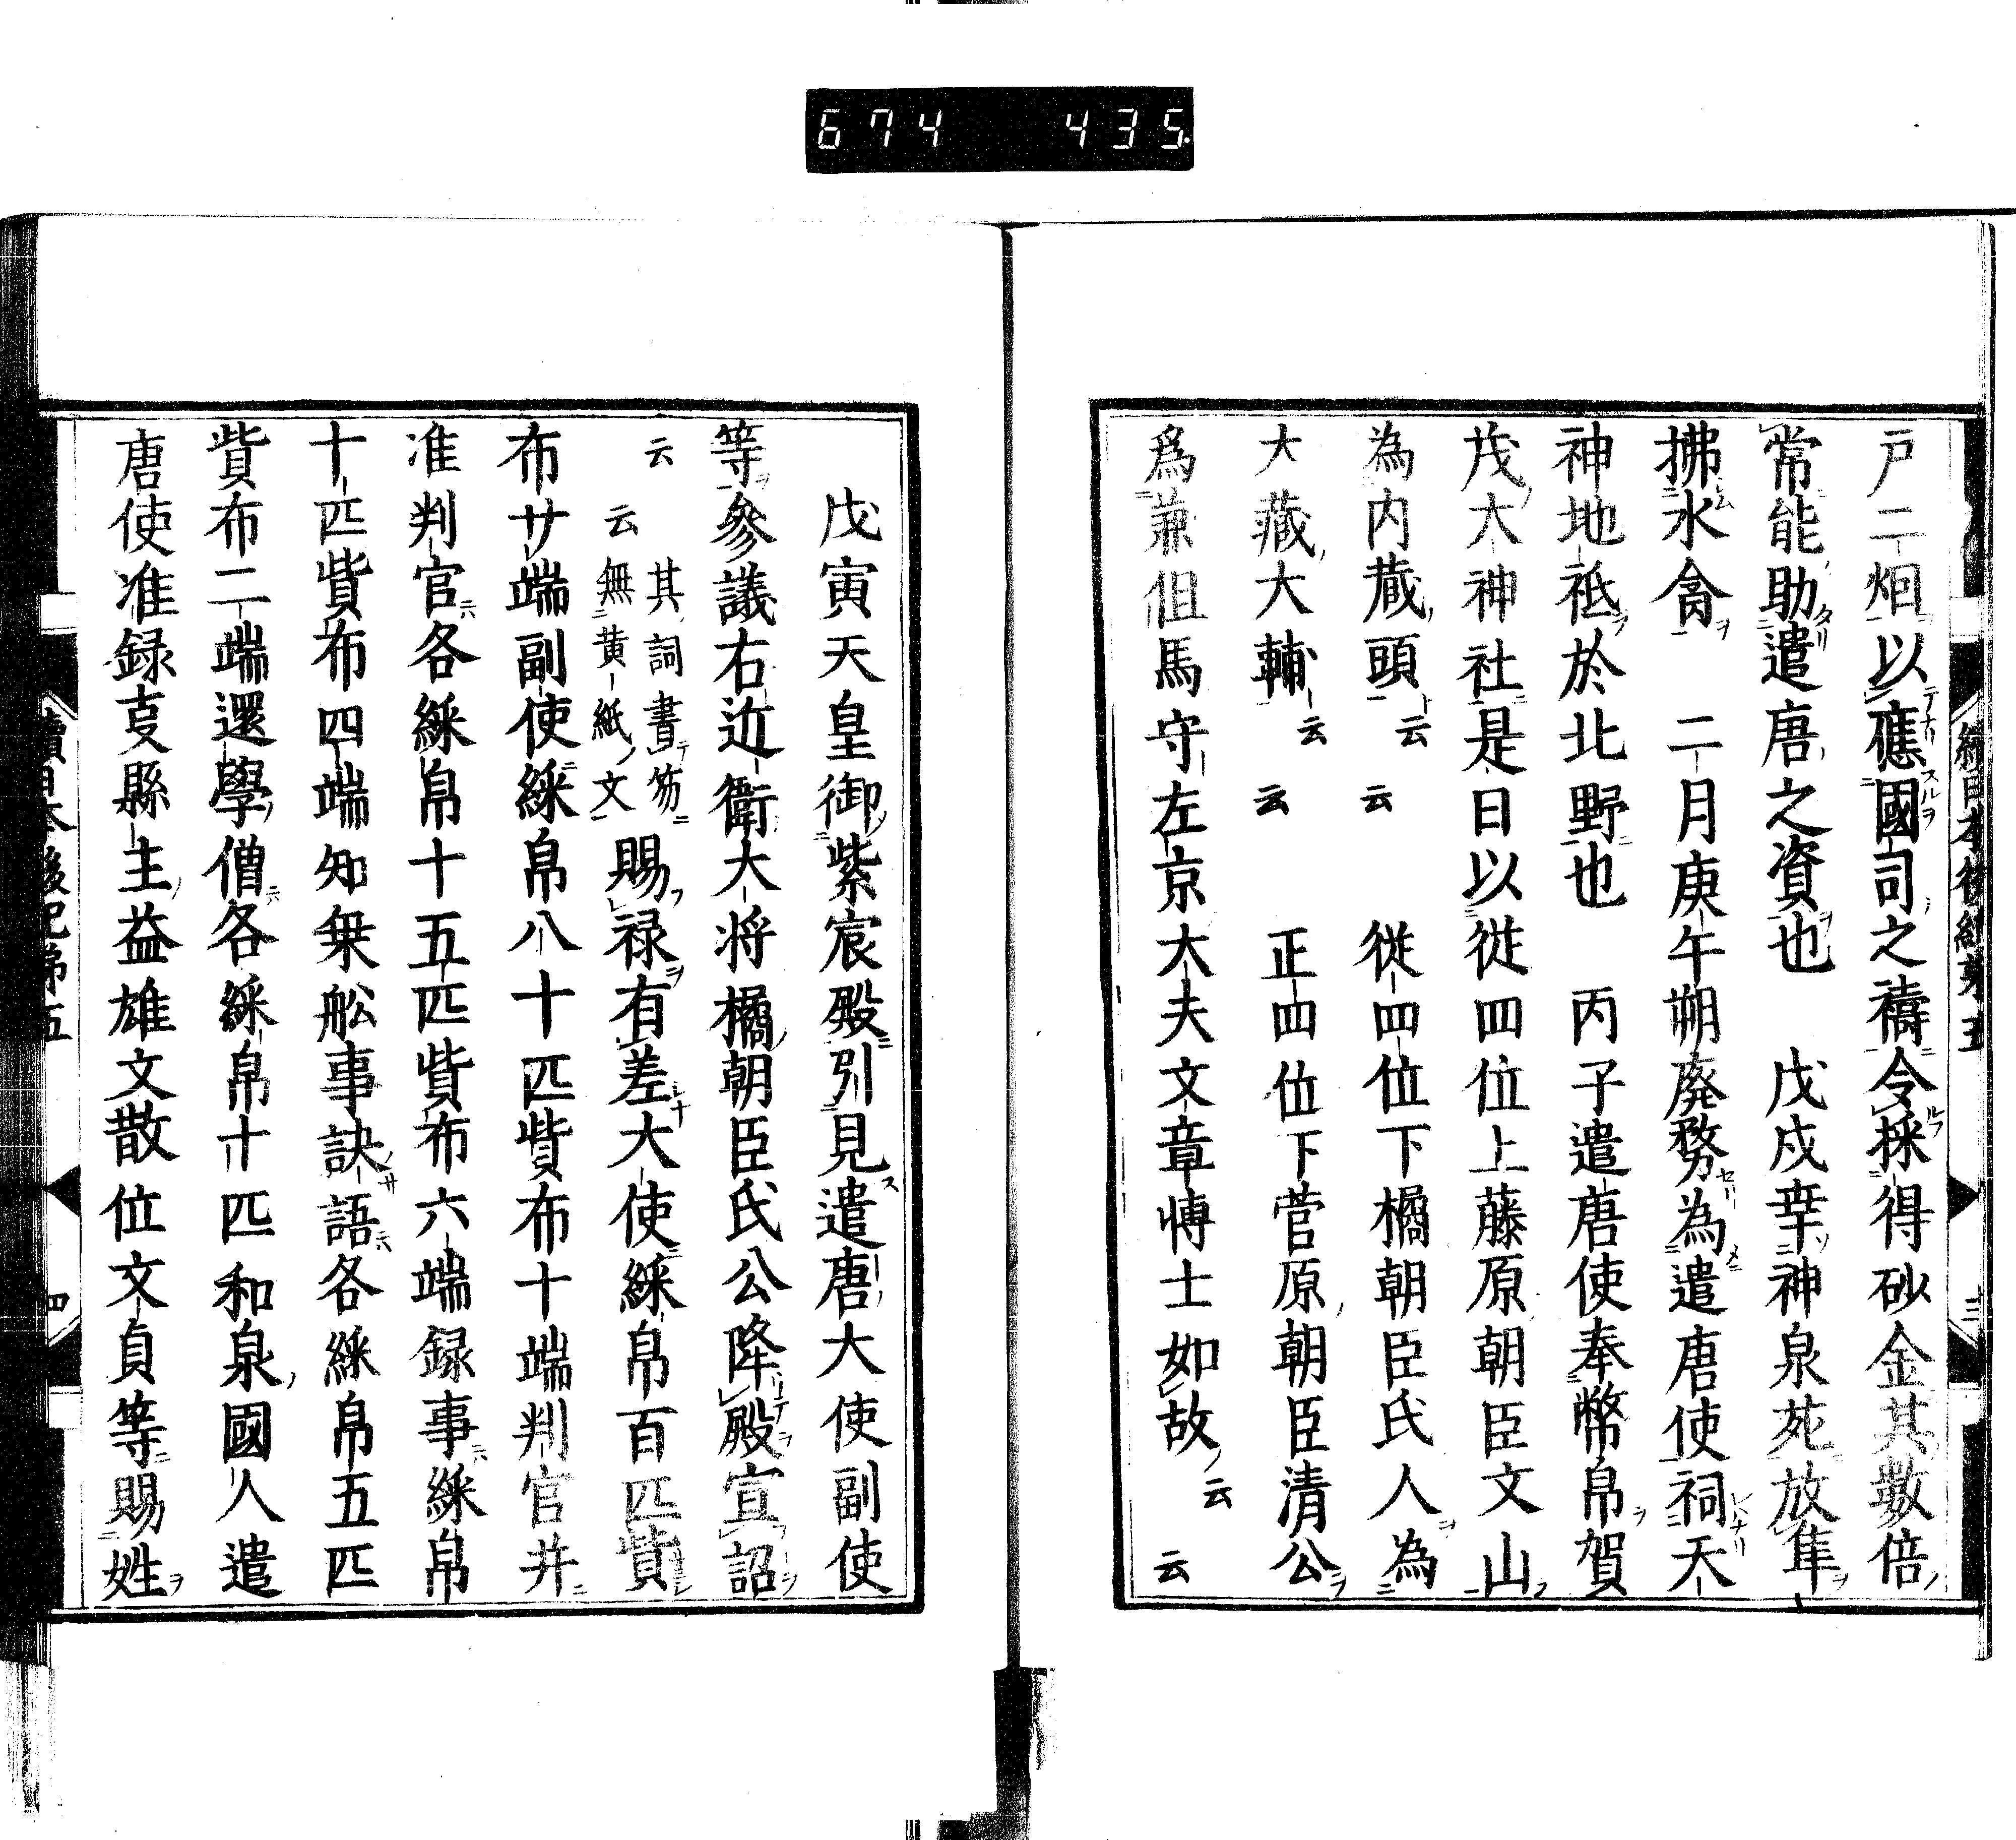 674 435
戸二烟以應國司之禱令採得砂金其數倍
常能助遣唐之資也 戊戌幸神泉苑放隼
拂水禽 二月庚午朔廃務為遣唐使祠天
神地祇於北野也 丙子遣唐使奉幣帛賀
茂大神社是日以從四位上藤原朝臣文山
為内蔵頭云云 從四位下橘朝臣氏人為
大藏大輔云云 正四位下菅原朝臣清公
為兼但馬守左京大夫文章博士如故云云
戊寅天皇御紫宸殿引見遣唐大使副使
等參議右近衛大将橘朝臣氏公降殿宣詔
云云其詞書笏無黄紙文賜禄有差大使綵帛百匹貲
布廿端副使綵帛八十匹貲布十端判官并
准判官各綵帛十五匹貲布六端録事綵帛
十匹貲布四端知乗舩事訣語各綵帛五匹
貲布二端還學僧各綵帛十匹和泉國人遣
唐使准録事縣主益雄文散位文貞等賜姓